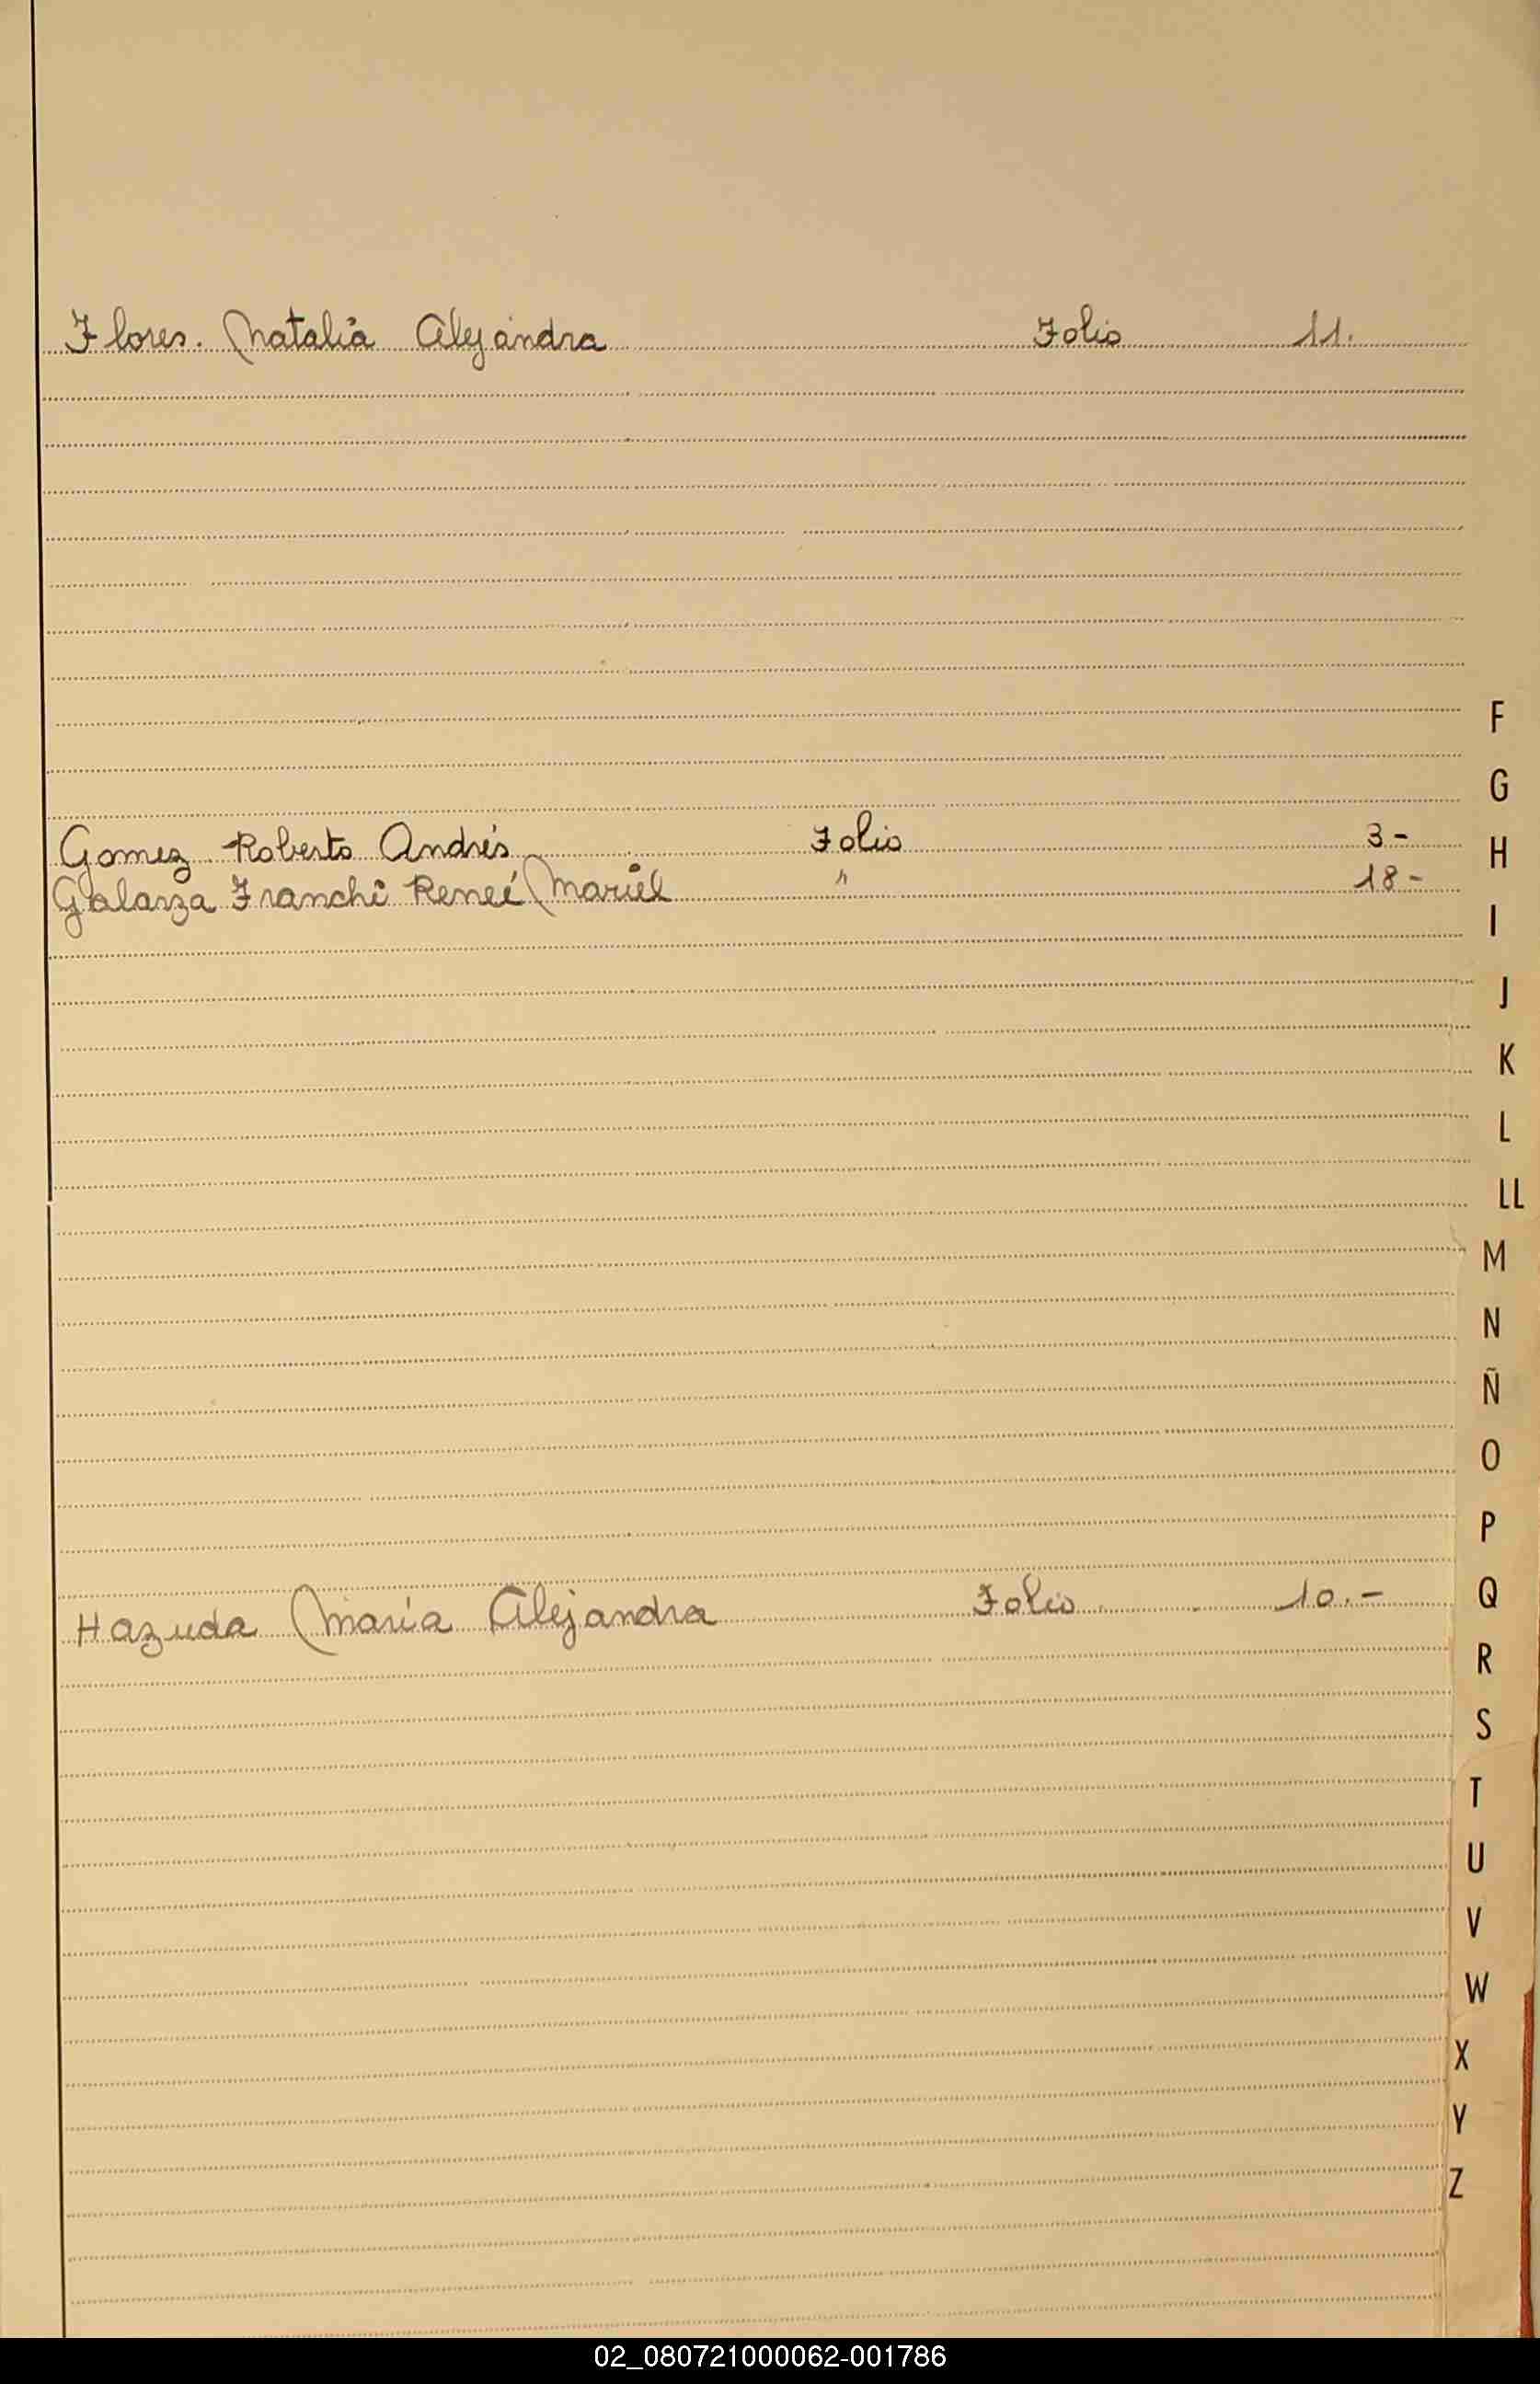 Flores. Natalia Alejandra Folio 11.
F
G
Gomez Roberto Andrés Folio 3-
H
Galarza Franchi Reneé Mariel " 18-
I
J
K
L
LL
M
N
Ñ
O
P
Q
Hazuda María Alejandra Folio 10.-
R
S
T
U
V
W
X
Y
Z
02_080721000062-001786